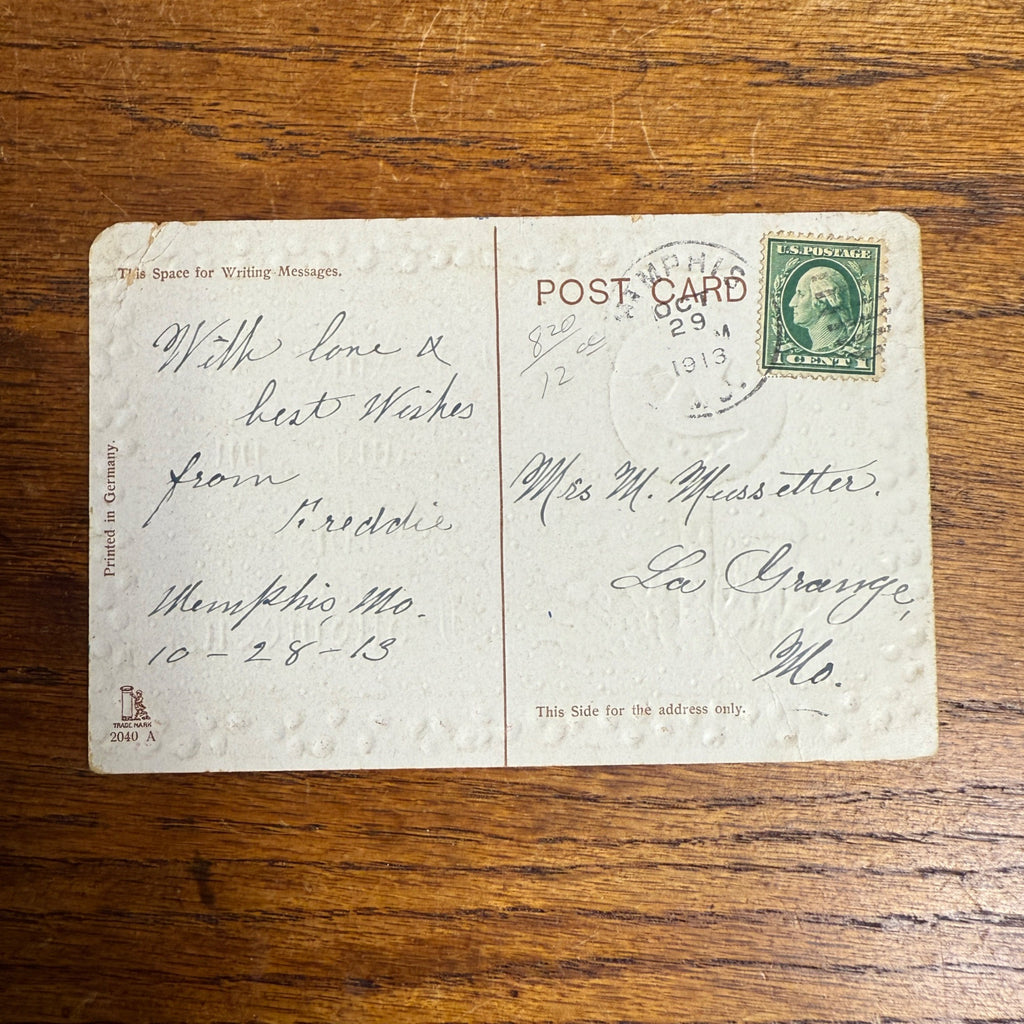 This Space for Writing Messages.
With love &
best Wishes
from
Freddie
Memphis, Mo.
10-28-13
Printed in Germany.
TRADE MARK
2040 A
POST CARD
MEMPHIS
OCT
29
M
1913
MO.
U.S. POSTAGE
1 CENT 1
8 20
12
Mrs M. Mussetter.
La Grange,
Mo.
This Side for the address only.